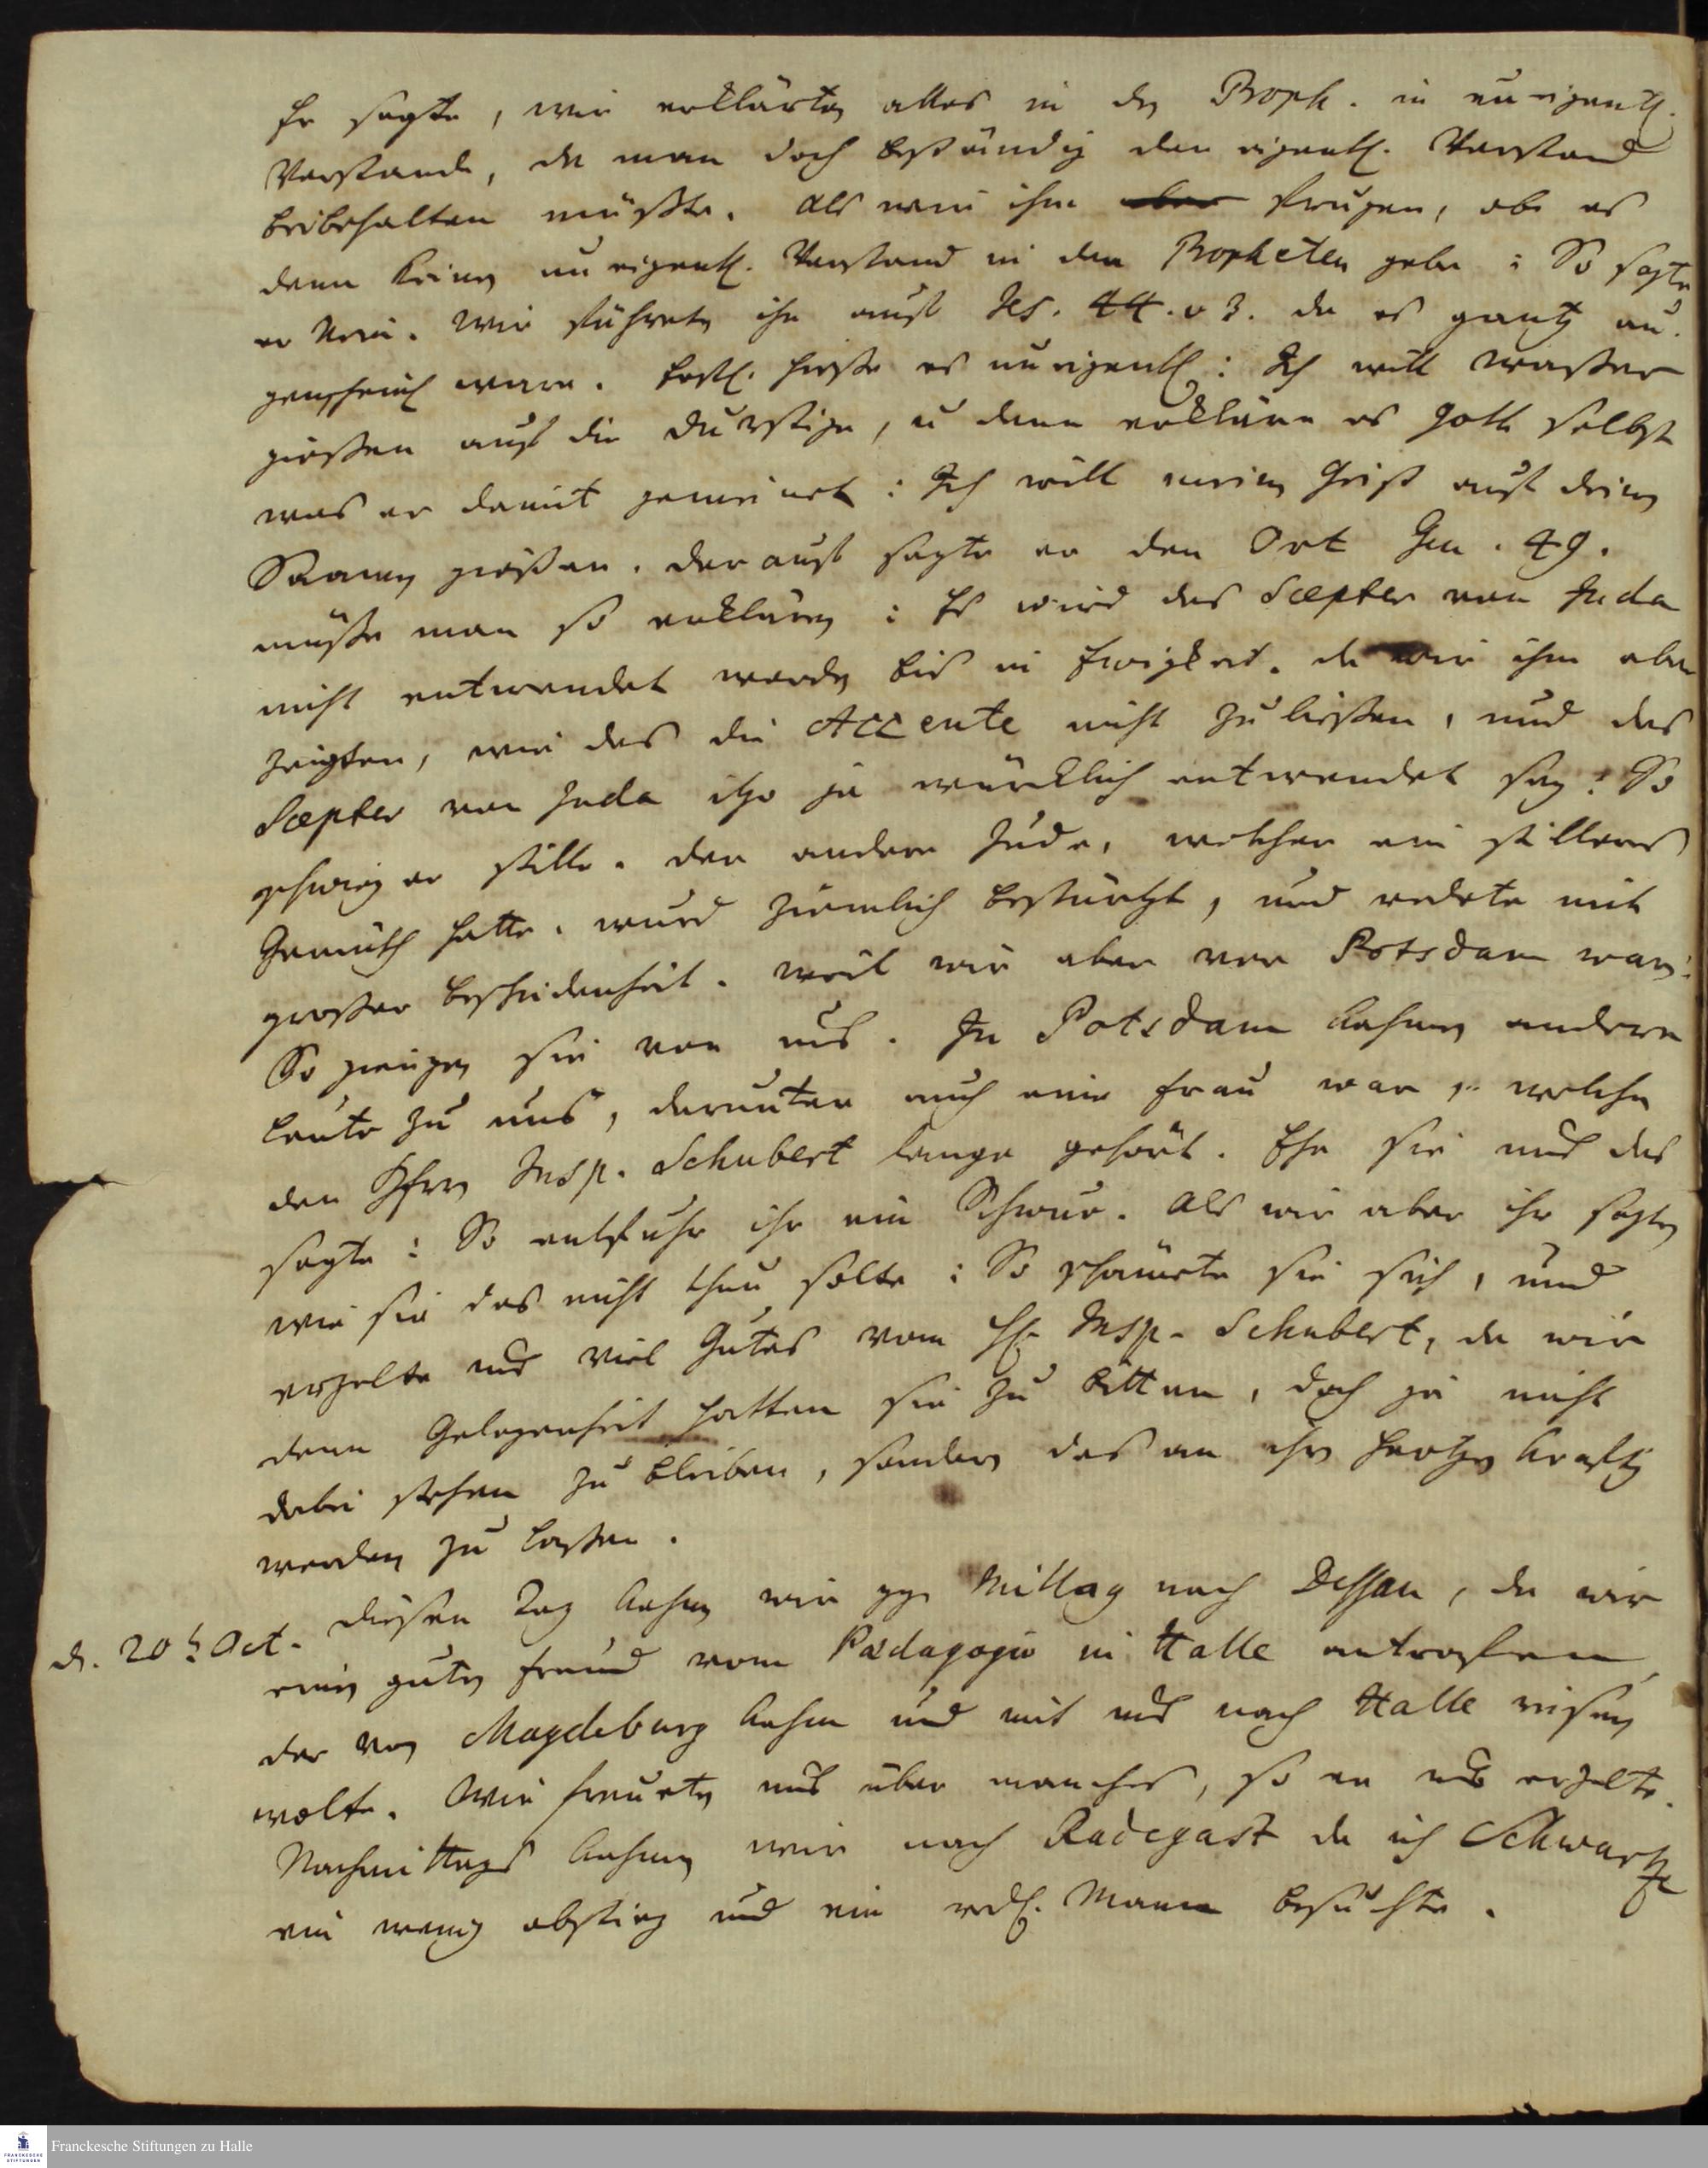 Er sagte, wir erklärten alles in den Proph. in uneigentl.
Verstande, da man doch beständig den eigentl. Verstand
beibehalten müßte. Als wir ihn aber frugen, ob es
denn keinen uneigentl. Verstand in den Propheten gebe: So sagte
er Nein. Wir führeten ihn auf Jes. 44. v 3. da es gantz au-
genscheinl. wäre. Erstl. hieße es uneigentl: Ich will waßer
gießen auf die durstige, u. denn erkläre es Gott selbst
was er damit gemeinet: Ich will meinen Geist auf deinen
Saamen gießen. darauf sagte er den Ort Gen. 49.
müße man so erklären: Es wird das Scepter von Juda
nicht entwendet werden bis in Ewigkeit. da wir ihm aber
zeigten, wie das die Accente nicht zu ließen, und das
Scepter von Juda itzo ja würcklich entwendet sey: So
schwieg er stille. der andere Jude, welcher ein stilleres
Gemüth hatte, wurd ziemlich bestürtzt, und redete mit
großer bescheidenheit. weil wir aber vor Potsdam waren:
So giengen sie von uns. In Potsdam kahmen andere
leute zu uns, darunter auch eine Frau war, welche
den Hherrn Insp. Schubert lange gehört. Ehe sie uns das
sagte: So entfuhr ihr ein Schwur. Als wir aber ihr sagten
wie sie das nicht thun solte: So schämete sie sich, und
erzelte uns viel Gutes vom H. Insp. Schubert, da wir
denn Gelegenheit hatten sie zu bitten, doch ja nicht
dabei stehen zu bleiben, sondern das an ihr Hertzen kräftig
werden zu laßen.
d. 20t Oct. diesen Tag kahmen wir gg. Mittag nach Dessau, da wir
einen guten Freund vom Pædagogio in Halle antrafen,
der von Magdeburg kahm und mit uns nach Halle reisen
wolte. Wir freueten uns über manches, so er uns erzelte.
Nachmittags kahmen wir nach Radegast da ich Schwartze
ein wenig abstieg und ein redl. Mann besuchte.
Franckesche Stiftungen zu Halle